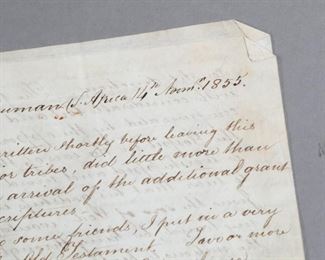 uruman S. Africa 14th Novmr. 1855.
written shortly before leaving this
or tribes, did little more than
arrival of the additional grant
scriptures
some friends, I put in a very
Old Testament. Two or more